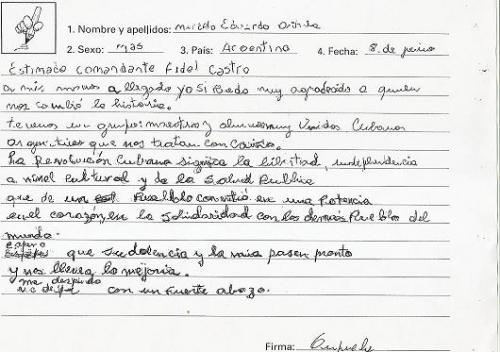 1. Nombre y apellidos: Eduardo
2. Sexo: mas 3. País: Argentina 4. Fecha: 8. de junio
Estimado comandante Fidel Castro
a mis manos a llegado yo si Redo muy agradesido a quien
nos cambió la historia.
tenemos un grupo: maestros y alumnos muy Unidos Cubanos
argentinos que nos tratan con Cariño.
ha Revolución Cubana significa la libertad, independencia
a nivel Cultural y de la Salud Publica
que de un Pueblo lo convirtió en una Potencia
en el corazón, en la Solidaridad con los demás Pueblos del
mundo.
espero que su dolencia y la mia pasen pronto
y nos lleva la mejoria.
me despido con un Fuerte abazo.
Firma: